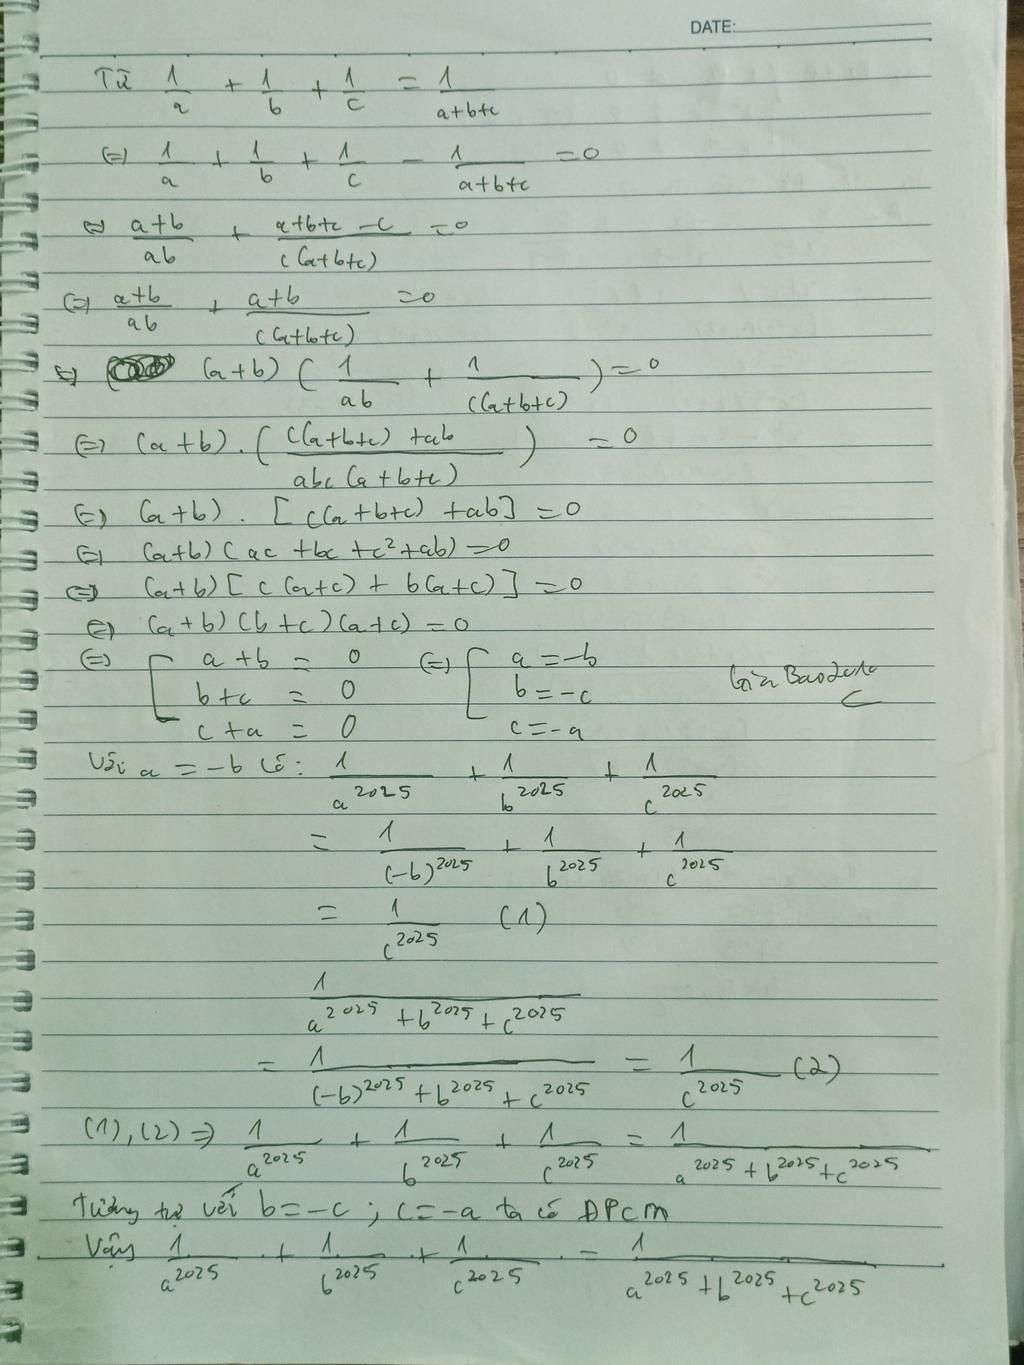 DATE:
Từ 1/a + 1/b + 1/c = 1/(a+b+c)
(=) 1/a + 1/b + 1/c - 1/(a+b+c) = 0
(=) (a+b)/ab + (a+b+c-c)/(c(a+b+c)) = 0
(=) (a+b)/ab + (a+b)/(c(a+b+c)) = 0
(=) (a+b) (1/ab + 1/(c(a+b+c))) = 0
(=) (a+b) . ((c(a+b+c) + ab)/(abc(a+b+c))) = 0
(=) (a+b) . [c(a+b+c) + ab] = 0
(=) (a+b)(ac + bc + c² + ab) = 0
(=) (a+b)[c(a+c) + b(a+c)] = 0
(=) (a+b)(b+c)(a+c) = 0
(=) [ a+b = 0 (=) [ a = -b
b+c = 0 b = -c
c+a = 0 c = -a
Với a = -b có: 1/a^2025 + 1/b^2025 + 1/c^2025
= 1/(-b)^2025 + 1/b^2025 + 1/c^2025
= 1/c^2025 (1)
1/(a^2025 + b^2025 + c^2025)
= 1/((-b)^2025 + b^2025 + c^2025) = 1/c^2025 (2)
(1), (2) => 1/a^2025 + 1/b^2025 + 1/c^2025 = 1/(a^2025 + b^2025 + c^2025)
Tương tự với b = -c ; c = -a ta có ĐPCM
Vậy 1/a^2025 + 1/b^2025 + 1/c^2025 = 1/(a^2025 + b^2025 + c^2025)